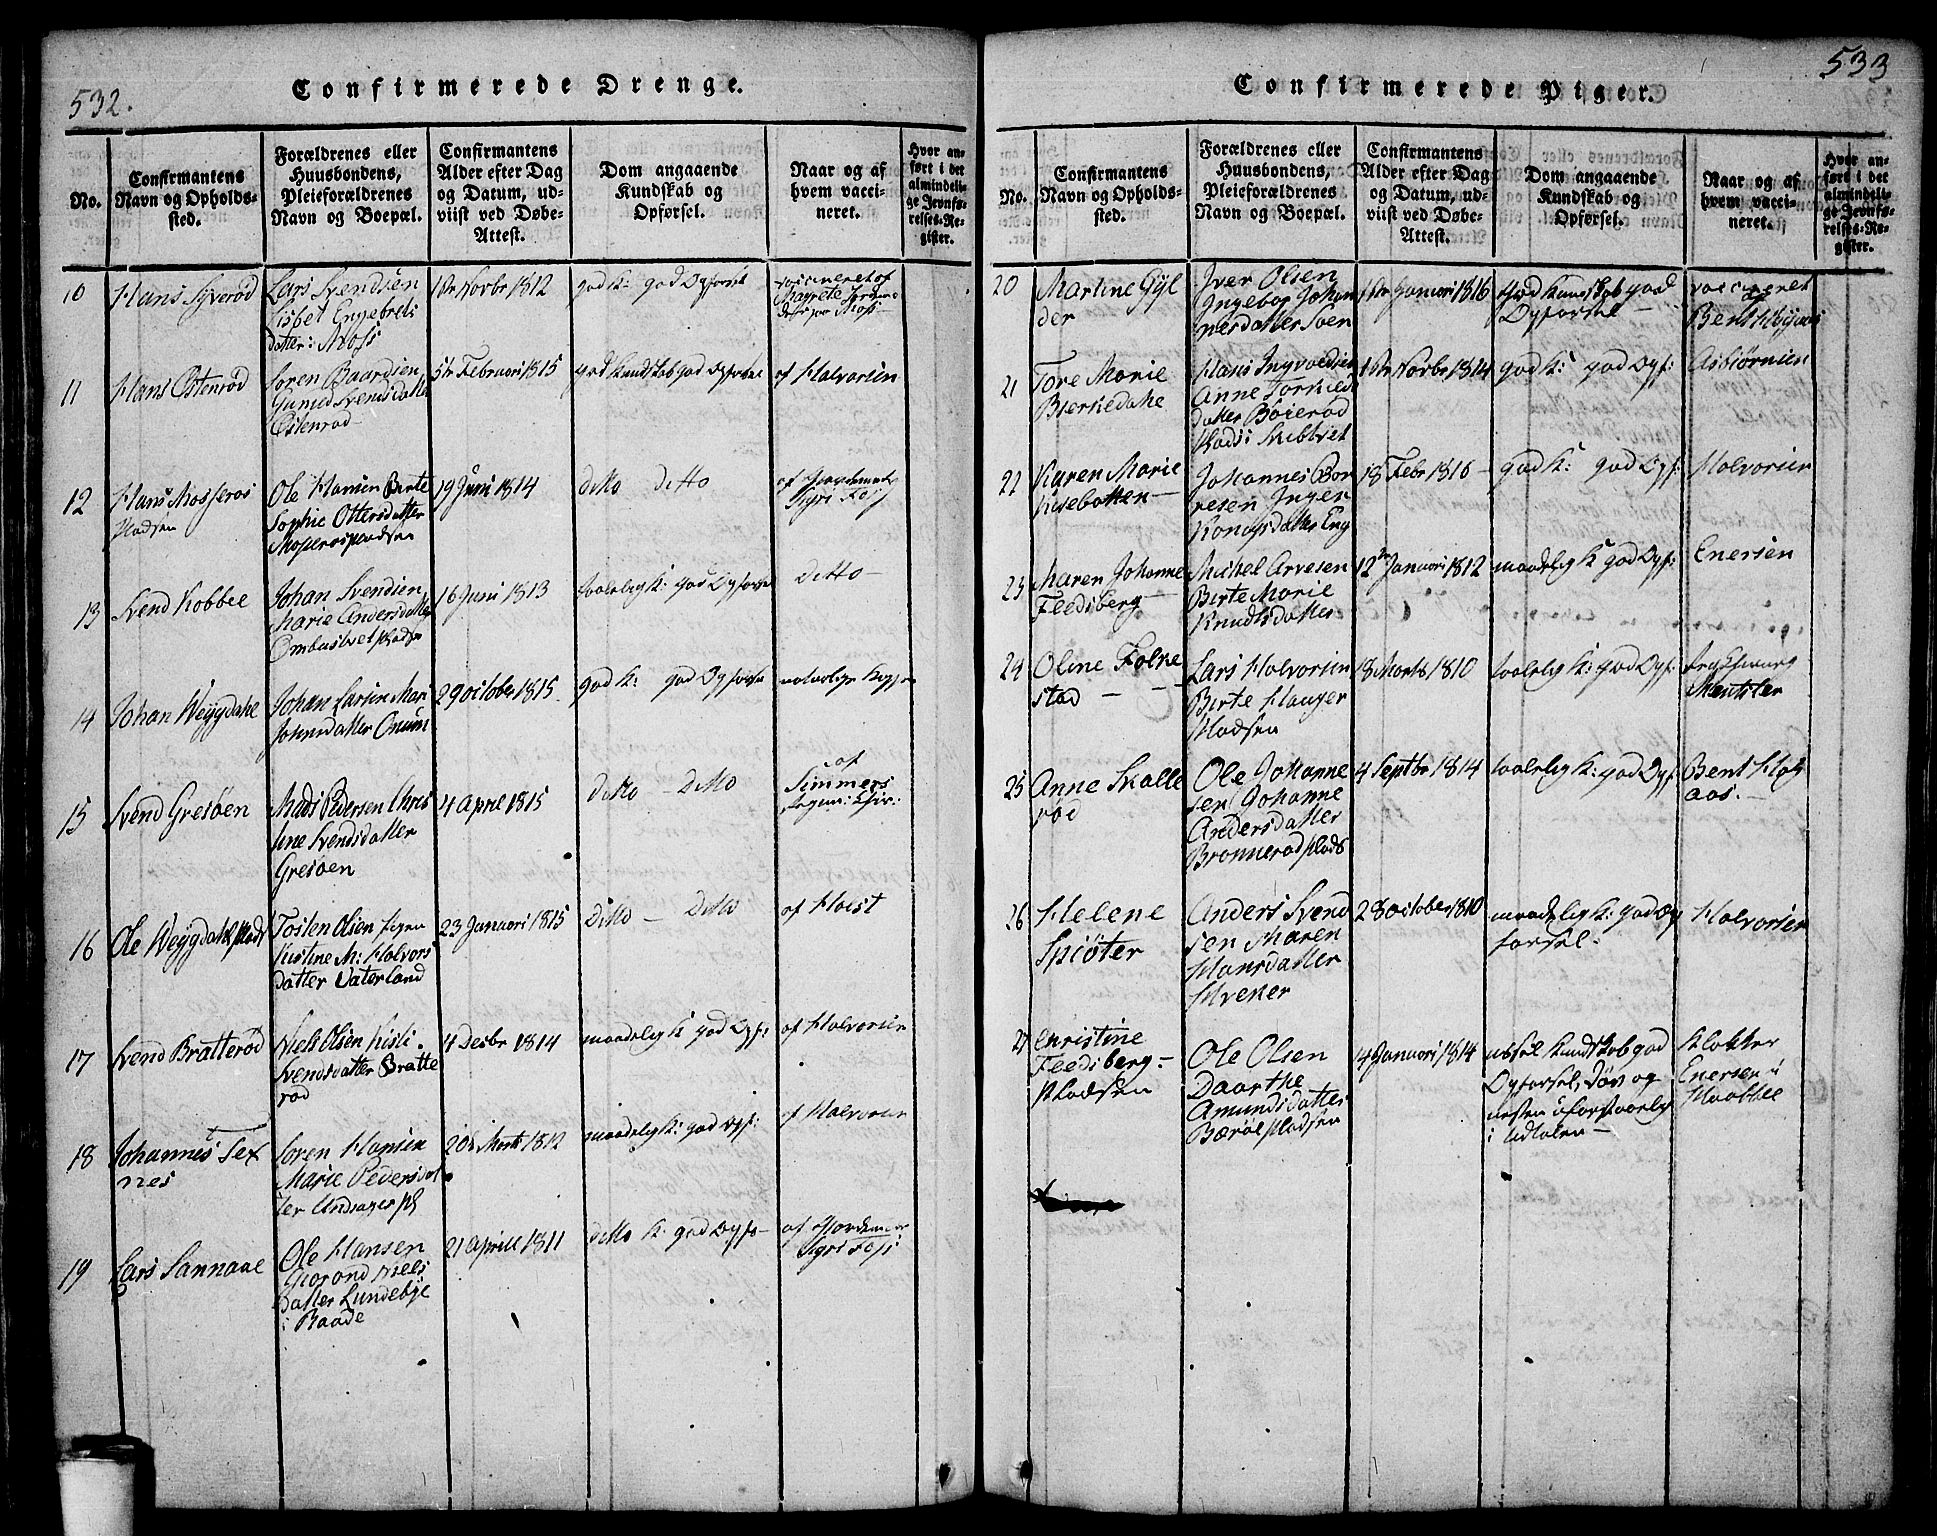 532.
Confirmerede Drenge.
No.
Confirmantens
Navn og Opholds-
sted.
Forældrenes eller
Huusbondens,
Pleieforældrenes
Navn og Boepæl.
Confirmantens
Alder efter Dag
og Datum, ud-
viist ved Døbe-
Attest.
Dom angaaende
Kundskab og
Opførsel.
Naar og af
hvem vacci-
neret.
Hvor an-
ført i det
almindeli-
ge Jevnfø-
relses-Re-
gister.
10
Hans Syverød
Lars Svendsen
Lisbet Engebrets
datter: Moss
1 Novbr 1812
god K: god Opførsel
vaccineret af
11
Hans Østenrød
Søren Baardsen
Svendsdatter
Østenrød
5te Februari 1815
god Kundskab god Opførsel
af Halvorsen
12
Hans Mosseros
Pladsen
Ole Hansen Berte
Sophie Ottersdatter
Mosserospladsen
19 Juni 1814
ditto ditto
Sigri Foss
13
Svend Kobbel
Johan Svendsen
Marie Andersdatter
16 Juni 1813
taalelig K: god Opførsel
ditto
14
Johan Weygdahl
Johan Larsen Mari
Johnsdatter Onum
29 October 1815.
god K: god Opførsel
naturlige Kopper
15
Svend Gresøen
Mads Pedersen Chris
tine Svendsdatter
Gresøen
4 April 1815
ditto ditto
af
Simmers
16
Ole Weygdahl plads
Tosten Olsen
Kistine M: Halvors
datter Vaterland
23 Januari 1815
ditto — ditto
af Holst
17
Svend Bratterød
Niels Olsen Kisti
Svendsdatter Bratte
rød
4 Decbr 1814
maadelig K: god Opf:
af Halvorsen
18
Johannes Tex
nes
Søren Hansen
Marie Pedersdat
ter
20de Marts 1812
maadelig K: god Opf:
af Halvorsen
19
Lars Sannaae
Ole Hansen
Niels
datter Lundebye
i Raade
21 April 1811
ditto K: god Opfø-
af Jordemoer
Sigri Foss
533
Confirmerede Piger.
No.
Confirmantens
Navn og Opholds-
sted.
Forældrenes eller
Huusbondens,
Pleieforældrenes
Navn og Boepæl.
Confirmantens
Alder efter Dag
og Datum, ud-
viist ved Døbe-
Attest.
Dom angaaende
Kundskab og
Opførsel.
Naar og af
hvem vacci-
neret.
Hvor an-
ført i det
almindeli-
ge Jevnfø-
relses-Re-
gister.
20
Martine Gyl
der
Iver Olsen
Ingebor Johan
nesdatter Soen
1 Januari 1816
God Kundskab god
Opførsel —
vaccineret
Bent
21
Tore Marie
Bierkedahl
Hans Ingvoldsen
Anne Torkilds
datter Bøierød
Plads i Skibtvet
1 Novbr 1814
god K: god Opf:
Asbiørnsen
22
Karen Marie
Kisebotten —
Johannes Bor
resen Inger
datter Eng
18 Febr 1816 —
god K: god Opf:
Halvorsen
23
Maren Johanne
Feedsberg —
Mickel Arvesen
Birte Marie
Knudtsdatter
12te Januari 1812
maadelig K: god Opf:
Enersen
24
Oline Folke
stad — —
Lars Halvorsen
Birte Hauger
Pladsen
18 Marts 1810
taalelig K: god Opf:
25
Anne Skalle
rød
Ole Johanne
sen Johanne
Andersdatter
Brønnerød plads
4 Septbr 1814
taalelig K: god Opf
Bent Høy
aas. —
26
Helene
Spiøter
Anders Svend
sen Maren
Hansdatter
Hueker
28 October 1810
maadelig K: god Op
førsel.
Halvorsen
27
Christine
Feedsberg —
Pladsen
Ole Olsen
Daarthe
Amundsdatter
Bærøe pladsen
4 Januari 1814
ussel Kundskab god
Opførsel, Døv og
nesten uforstaaelig
i Udtalen —
Klokker
Enersen i
Haabbøl